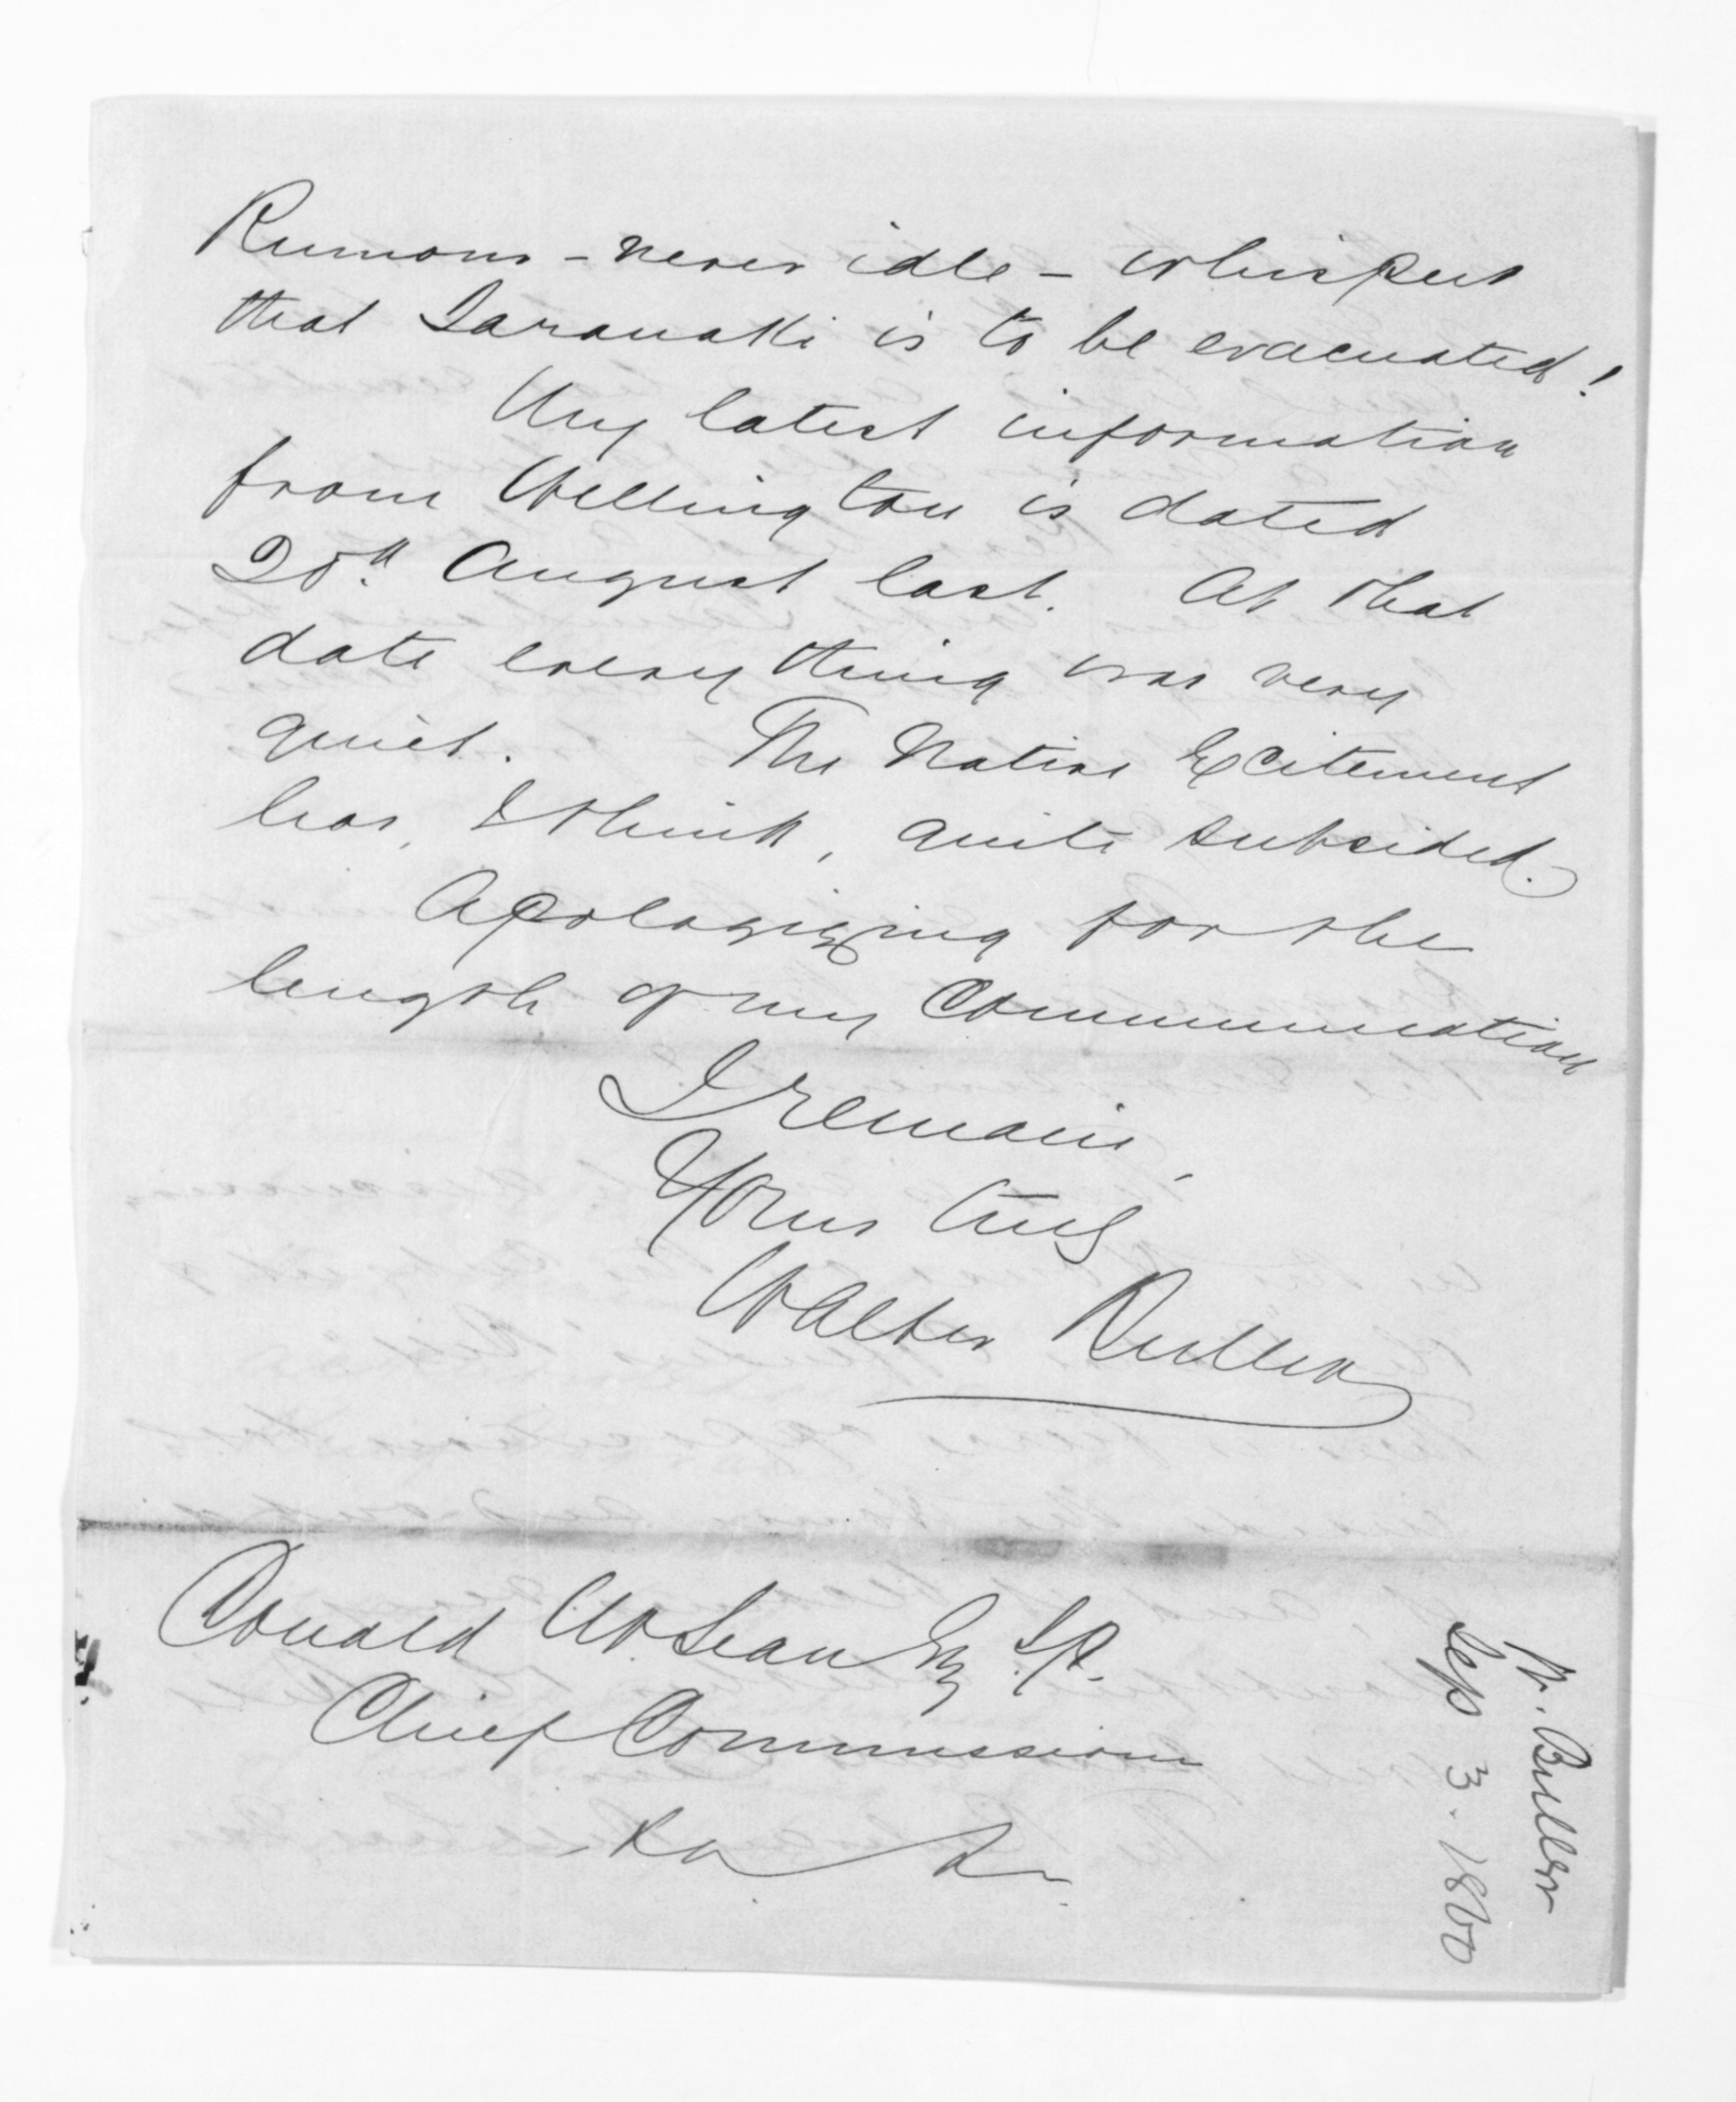 Rumour - never idle - whispers
that Taranaki is to be evacuated!
My latest information
from Wellington is dated
20th August last. At that
date every thing was very
quiet. The Native Excitement
has, I think, quite subsided.
Apologizing for the
length of my Communication
I remain,
Yours truly
Walter Buller
Donald McLean Esq J.P.
Chief Commissioner
&c &c
W. Buller
Sep 3. 1860